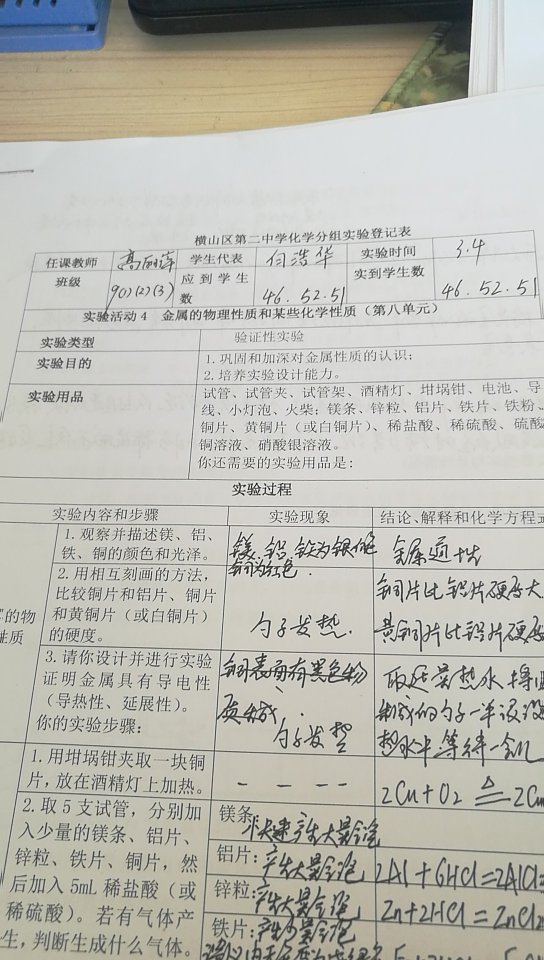 横山区第二中学化学分组实验登记表
任课教师 学生代表 何浩华 实验时间 3.4
班级 9(1)(2)(3) 应到学生数 46.52.51 实到学生数 46.52.51
实验活动4 金属的物理性质和某些化学性质（第八单元）
实验类型 验证性实验
实验目的 1.巩固和加深对金属性质的认识；
2.培养实验设计能力。
实验用品 试管、试管夹、试管架、酒精灯、坩埚钳、电池、导
线、小灯泡、火柴；镁条、锌粒、铝片、铁片、铁粉、
铜片、黄铜片（或白铜片）、稀盐酸、稀硫酸、硫酸
铜溶液、硝酸银溶液。
你还需要的实验用品是：
实验过程
实验内容和步骤 实验现象 结论、解释和化学方程式
的物
性质
1.观察并描述镁、铝、
铁、铜的颜色和光泽。
镁、铝、铁为银白色
铜为红色.
金属通性
2.用相互刻画的方法，
比较铜片和铝片、铜片
和黄铜片（或白铜片）
的硬度。
勺子发热.
铜片比铝片硬度大
黄铜片比铝片硬度
3.请你设计并进行实验
证明金属具有导电性
（导热性、延展性）。
你的实验步骤：
铜表面有黑色物
质生成.
勺子发热
取适量热水 将
制成的勺子一半浸没
热水中 等待一会儿
1.用坩埚钳夹取一块铜
片，放在酒精灯上加热。
- - - -
2Cu+O₂ △ 2Cu
2.取5支试管，分别加
入少量的镁条、铝片、
锌粒、铁片、铜片，然
后加入5mL稀盐酸（或
稀硫酸）。若有气体产
生，判断生成什么气体。
镁条
产生大量气泡
铝片：产生大量气泡 2Al+6HCl=2AlCl
锌粒：产生大量气泡 Zn+2HCl=ZnCl₂
铁片：产生少量气泡